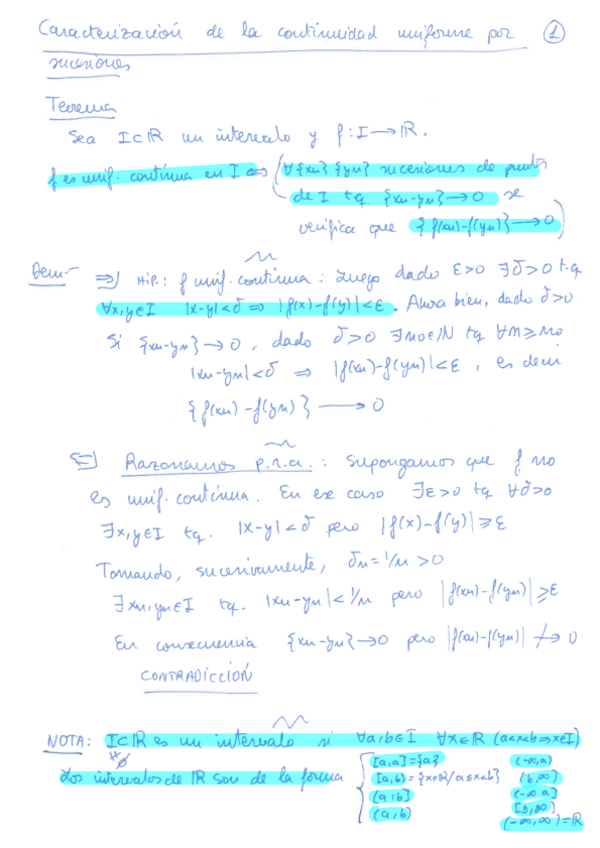 Caracterización de la continuidad uniforme por ①
sucesiones
Teorema
Sea I⊂ℝ un intervalo y f: I→ℝ.
f es unif. continua en I ⇔ (∀{xn} {yn} sucesiones de puntos
de I tq. {xn-yn}→0 se
verifica que {f(xn)-f(yn)}→0)
Dem- ⇒) Hip.: f unif. continua: Luego dado ε>0 ∃δ>0 t.q.
∀x,y∈I |x-y|<δ ⇒ |f(x)-f(y)|<ε. Ahora bien, dado δ>0
Si {xn-yn}→0, dado δ>0 ∃n0∈ℕ tq ∀n≥n0
|xn-yn|<δ ⇒ |f(xn)-f(yn)|<ε, es decir
{f(xn)-f(yn)}→0
⇐) Razonamos p.r.a.: Supongamos que f no
es unif. continua. En ese caso ∃ε>0 tq. ∀δ>0
∃x,y∈I tq. |x-y|<δ pero |f(x)-f(y)|≥ε
Tomando, sucesivamente, δn=1/n>0
∃xn,yn∈I tq. |xn-yn|<1/n pero |f(xn)-f(yn)|≥ε
En consecuencia {xn-yn}→0 pero |f(xn)-f(yn)|↛0
CONTRADICCIÓN
NOTA: I⊂ℝ es un intervalo si ∀a,b∈I ∀x∈ℝ (a≤x≤b⇒x∈I)
≠∅
Los intervalos de ℝ son de la forma
[a,a]={a} (-∞,a)
[a,b)={x∈ℝ/a≤x<b} (b,∞)
(a,b] (-∞,a]
(a,b) [b,∞)
(-∞,∞)=ℝ